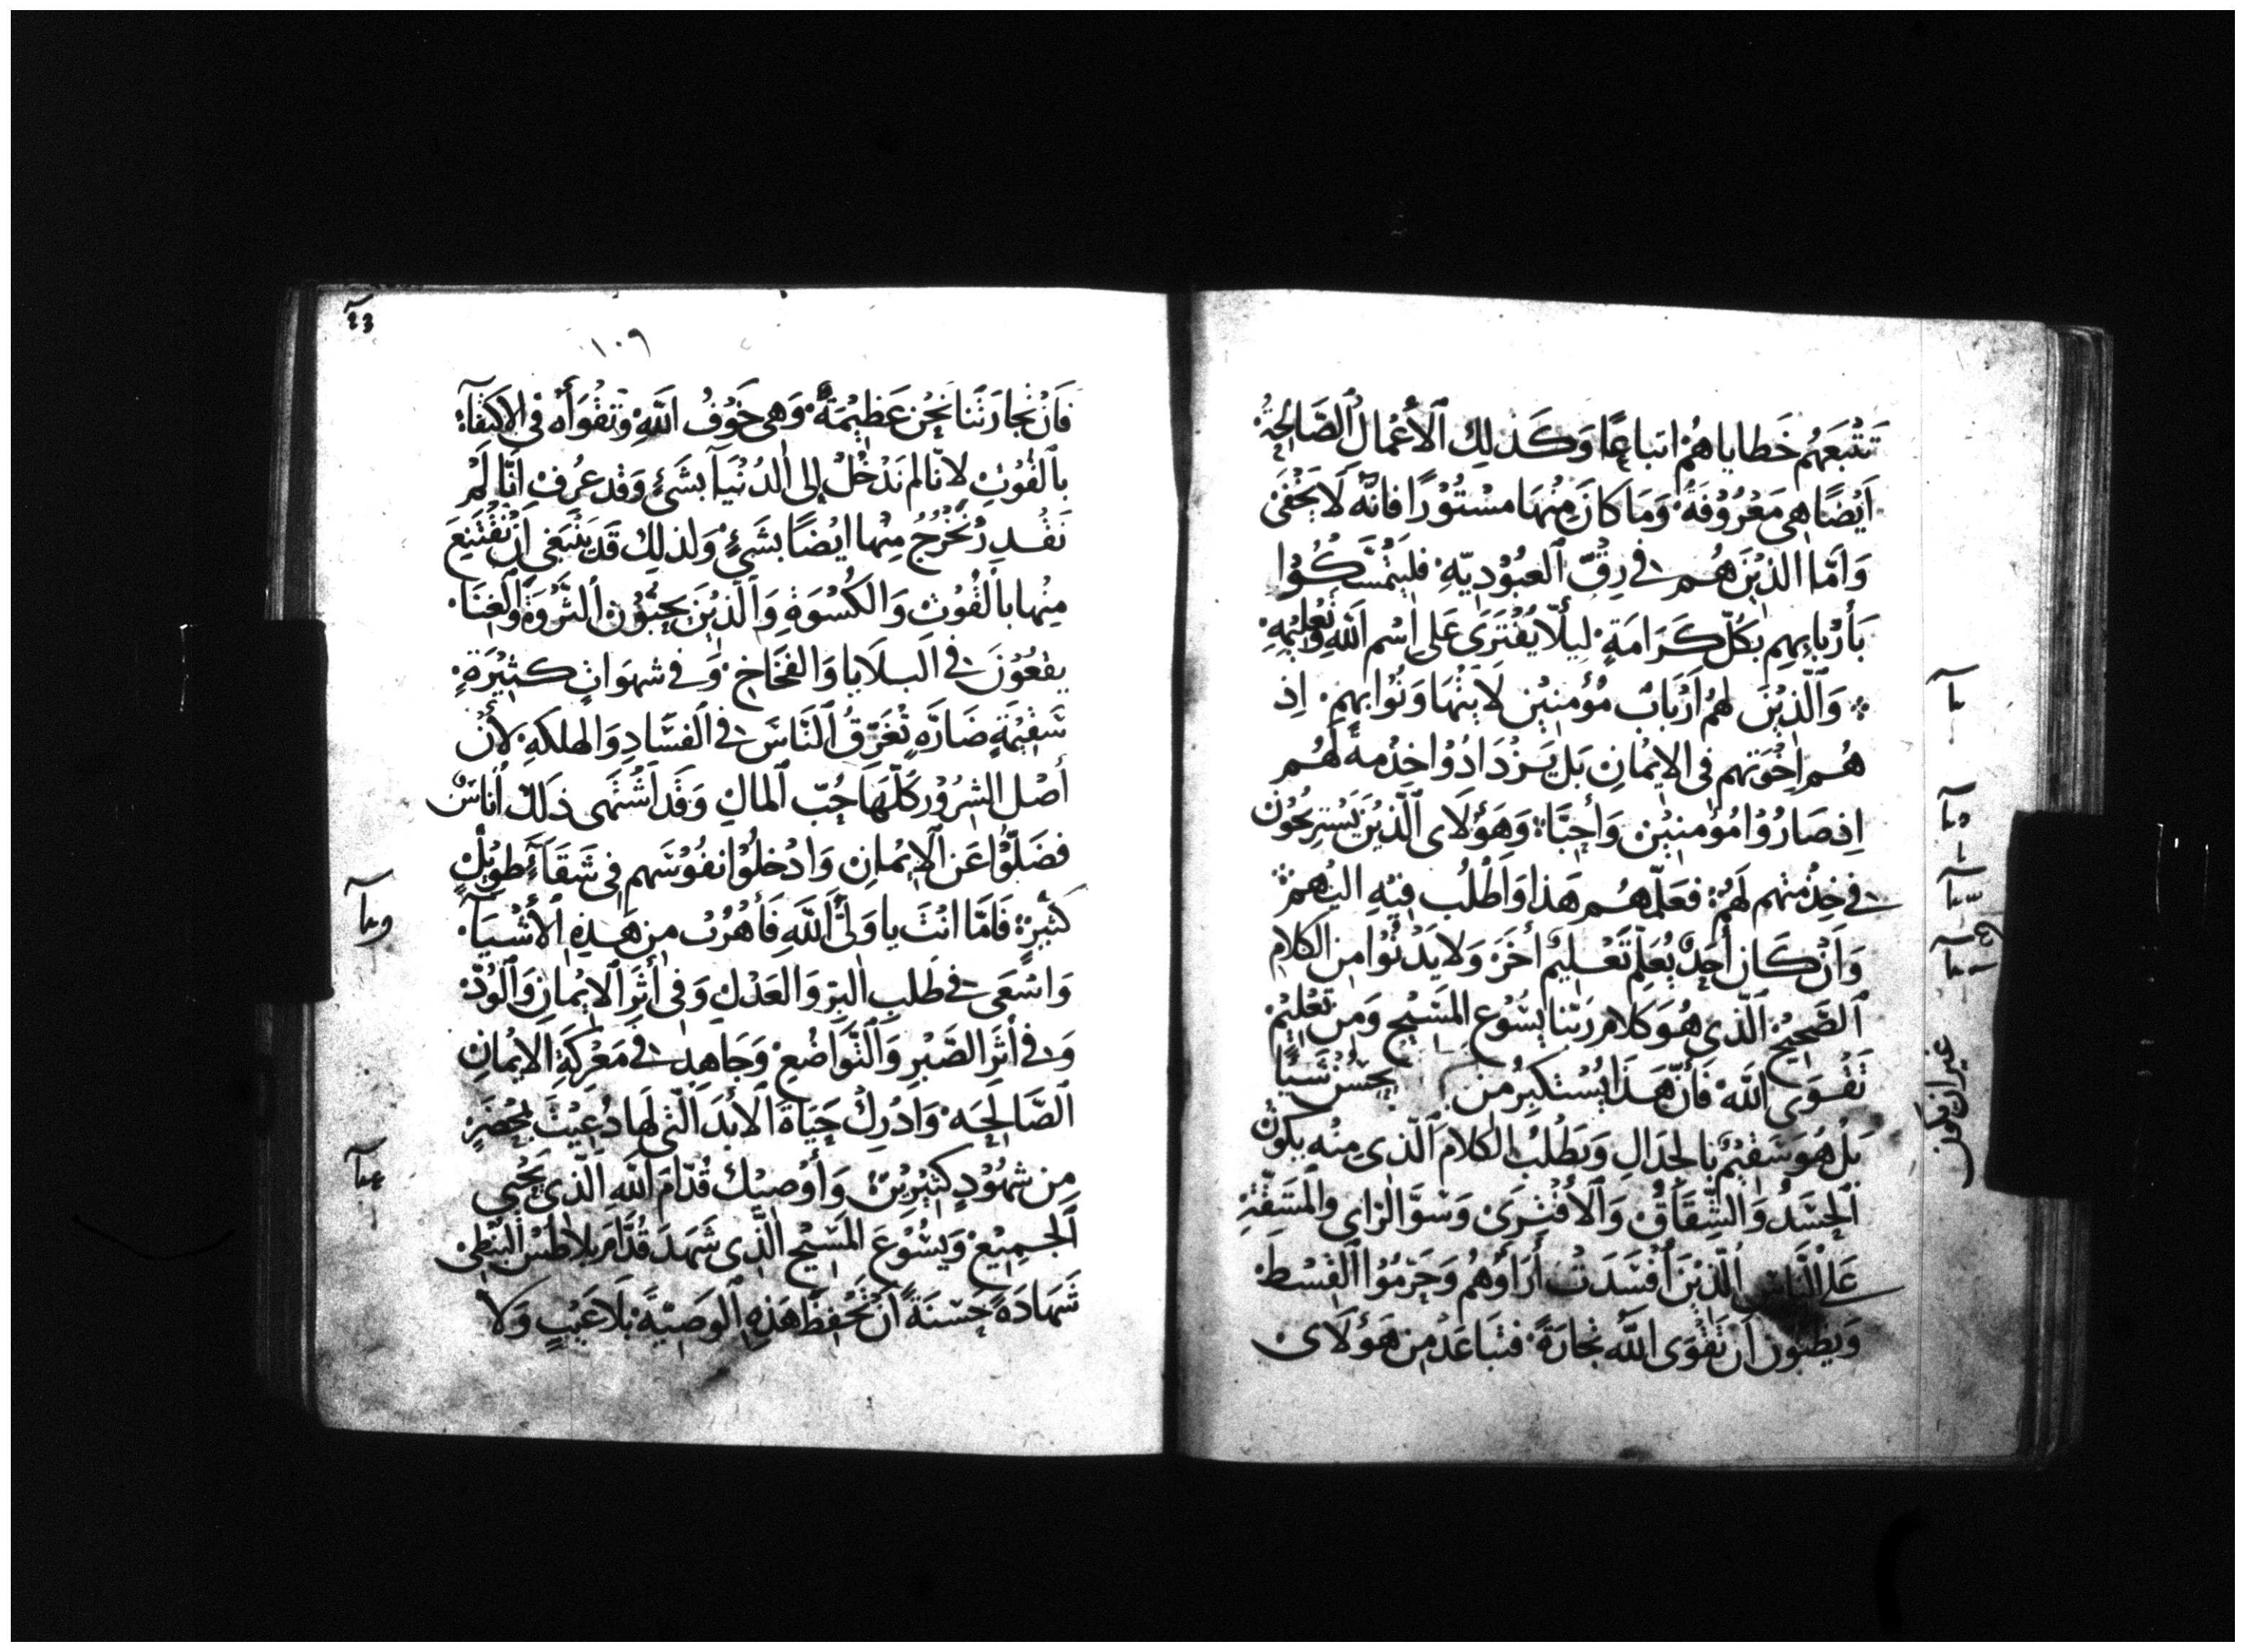 تَتْبَعَهُم خَطاياهُمْ اتباعًا وَكَذلِك ٱلأَعْمال ٱلصَّالِحَةُ
اَيْضًا هِى مَعْرُوْفَةُ وَمَا كانَ مِنْهَا مسْتُوْرًا فانَّهُ لَا يَخْفَى
وَاَمّا الذيْنَ هُم فى رِقّ ٱلعبُوْديّهِ فليَتمْسَّكُوْا
بَأرْبابهِم بكُلّ كَرَامَةٍ لِيلَّا يُفْتَرَى عَلى اسْم اللَهِ وَتُعْليْمِهِ
وَٱلّذيْنَ لهُمُ اَرْبَابٌ مُؤْمنيْن لَا يتهَاوَنُوا بهِم اِذ
هُم اِخْوَتهم فى الاِيْمانِ بَل يَزْدَادُوْا خِدْمةً لَهُم
اِذ صَارُوْا مُؤْمنيْن وَأَحِبَّاءَ وَهَؤُلَاى ٱلّذيْنَ يَسْترِيحُوْن
فى خِدْمتهم لَهُمْ فعَلّمهُم هَذا وَاَطْلُب فيْهِ اليْهم
وَاَنْ كَان أَحَدٌ يُعَلِم تَعْليْم أخَرَ وَلا يَدْنُوْا مِن الكلام
ٱلصَّحِيْح ٱلّذى هُوَ كلام رَبّنا يسُوْع المَسِيْح وَمِن تعْليْم
تَقْوَى اللَهْ فَاِنَّ هَذَا يُسْتكبِرُ مِن يحْسُنْ شَيًا
بَلْ هُوَ سَقيْمٌ بالجدَالِ وَيَطْلُبُ الكلام ٱلّذى مِنْه يكوْن
ٱلحَسَدُ وَالشِّقَاقُ وَٱلأفْترَى وَسوَّ الرَاى والمَشقّةِ
عَلى ٱلنَّاس الّذيْنَ اَفْسَدَتْ أرَاؤهُم وَحَرَمُوْا ٱلقِسْط
وَيظنّوْن اَنّ تَقْوَى اللَّه تجَارَةً فتبَاعَدْ مِن هَؤلَاى
غير ان يكون
١٠٩
فَاَنّ تجارَتَنا نَحْن عَظيْمَةٌ وَهى خَوْفُ اللَهِ وَتقْوَاهُ فى الاكتفآءِ
بٱلقُوْتِ لانّا لم نَدْخُلْ إلى الدُنْيَا بشَىْءٍ وَقد عرُف اَنّا لَمْ
نَقْدِر نَخْرُجُ مِنْها ايْضًا بشَىْءٍ وَلذلِك قَد يَنْبَغى اَنْ نَقْتَنِعَ
مِنْها بالقُوْت وَالكُسْوَةِ وَالّذيْنَ يحِبّوْن ٱلثَّرْوَةَ وَٱلغِنَا
يقعُوْنَ فى ٱلبلَايا وَالفخَاخ وَفى شهوَاتٍ كثيْرَةٍ
سَقيْمَةٍ ضَارَّهٍ تُغَرّقُ ٱلنَّاسَ فى ٱلفسَّادِ وَالهلكةِ لأنّ
أصْل الشرُوْر كلّهَا حُبّ ٱلمالِ وَقَد اَشْتهَى ذَلكَ اُناسٌ
فضَلّوْا عَن ٱلإيْمانِ وَادْخلُوْا نفُوْسَهم فى شَقَآءٍ طوِيْلٍ
كثْيرٍ فَامّا انْتَ يا وَلىَّ اللَهِ فَأهْرُبْ مِن هَذهِ ٱلأشْيَآء
وَاسْعَى فى طَلب البرّ وَالعَدْلِ وَفى أثَر ٱلايْمانِ وَٱلوُدّ
وَفى أثَر الصَّبْر وَٱلتَّواضُع وَجَاهِد فى مَعْركَةِ الايْمانِ
ٱلصَّالحَه وَاَدْرِكْ حَيَاةَ ٱلأبَد الّتى لَها دُعِيْتَ بمحْضَرٍ
مِن شهُوْدٍ كَثيْرِيْن وَأُوْصِيْك قُدّامَ اللَهِ الّذى يُحْيى
ٱلجمِيْع وَيسُوْعَ المَسِيْح الّذى شَهدَ قُدَّام بلاطسْ البُنْطِى
شَهادَةً حَسَنَةً اَنْ تَحْفِظ هَذهِ ٱلوَصِيَّةَ بلَا عَيْبٍ وَلا